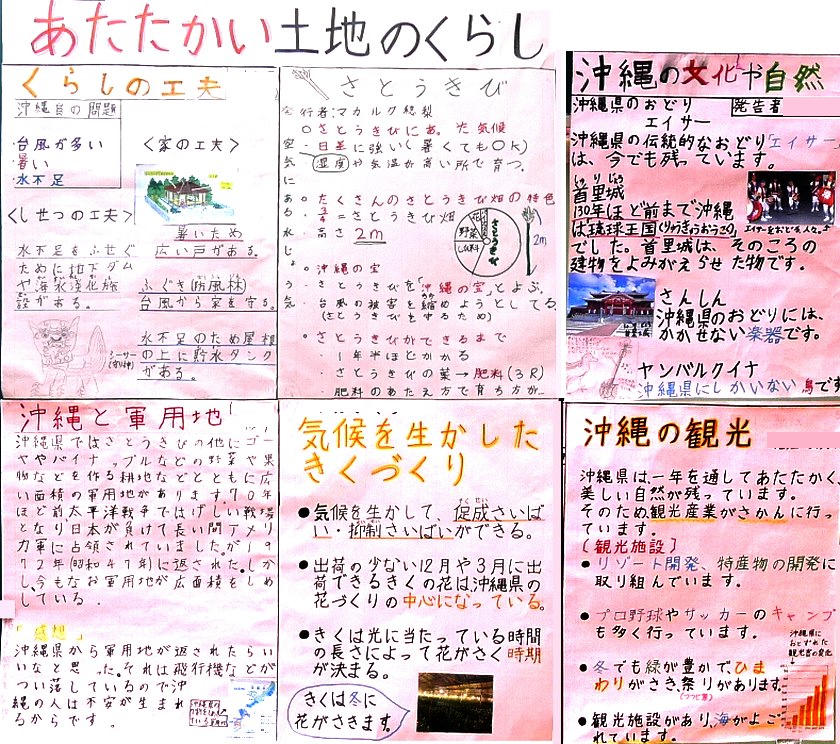 あたたかい土地のくらし
くらしの工夫
沖縄県の問題
・台風が多い
・暑い
・水不足
<家の工夫>
<しせつの工夫>
水不足をふせぐ
ために地下ダム
や海水淡化施
設がある。
シーサー
(守り神)
暑いため
広い戸がある。
ふくぎ(防風林)
台風から家を守る。
水不足のため屋根
の上に貯水タンク
がある。
さとうきび
空気にある水じょう気
さとうきびにあった気候
・日差に強い(暑くてもOK)
・湿度や気温が高い所で育つ。
たくさんのさとうきび畑の特色
・3/4=さとうきび畑
・高さ2m
花
野菜
さとうきび
2m
沖縄の宝
・さとうきびを「沖縄の宝」とよぶ。
・台風の被害を縮めようとしてる
(さとうきびを守るため)
さとうきびができるまで
・1年半ほどかかる
・さとうきびの葉→肥料(3R)
・肥料のあたえ方で育ち方が
沖縄の文化や自然
沖縄県のおどり
発告者
エイサー
沖縄県の伝統的なおどり「エイサー」
は、今でも残っています。
しゅりじょう
首里城
130年ほど前まで沖縄
は琉球王国(りゅうきゅうおうこく)
でした。首里城は、そのころの
建物をよみがえらせた物です。
さんしん
沖縄県のおどりには、
かかせない楽器です。
ヤンバルクイナ
沖縄県にしかいない鳥です
沖縄と軍用地
沖縄県ではさとうきびの他にゴー
ヤやパイナップルなどの野菜や果
物などを作る耕地などとともに広
い面積の軍用地があります。70年
ほど前太平洋戦争ではげしい戦場
となり日本が負けて長い間アメリ
カ軍に占領されていましたが19
72年(昭和47年)に返された。しか
し、今もなお軍用地が広面積をしめ
している。
「感想」
沖縄県から軍用地が返されたらい
いなと思った。それは飛行機などが
つい落しているので沖
縄の人は不安が生まれ
るからです。
気候を生かした
きくづくり
●気候を生かして、促成さいば
い・抑制さいばいができる。
●出荷の少ない12月や3月に出
荷できるきくの花は、沖縄県の
花づくりの中心になっている。
●きくは光に当たっている時間
の長さによって花がさく時期
が決まる。
きくは冬に
花がさきます。
沖縄の観光
沖縄県は、一年を通してあたたかく、
美しい自然が残っています。
そのため、観光産業がさかんに行っ
ています。
[観光施設]
●リゾート開発、特産物の開発に
取り組んでいます。
●プロ野球やサッカーのキャンプ
も多く行っています。
沖縄県に
おとずれた
観光客の変化
●冬でも緑が豊かで、ひま
わりがさき、祭りがあります。
●観光施設があり、海がよご
れています。